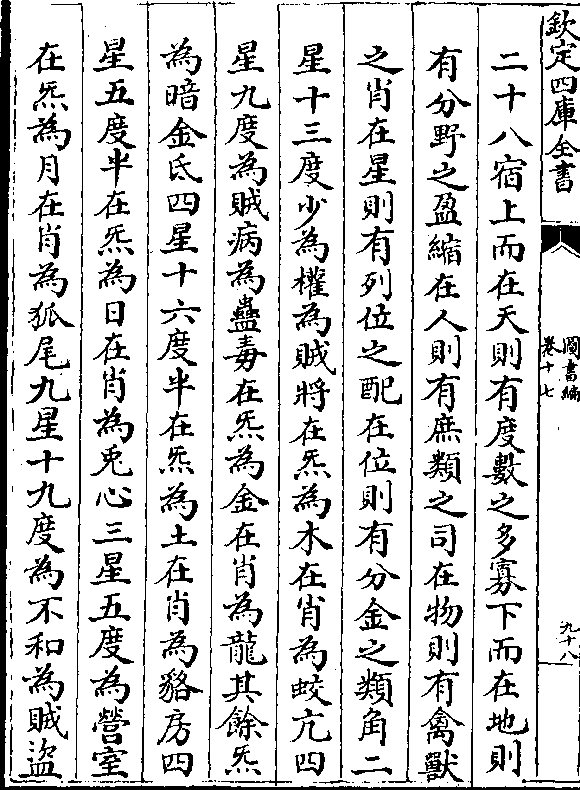 欽定四庫全書
圖書編
卷十七
九十八
二十八宿上而在天則有度數之多寡下而在地則
有分野之盈縮在人則有庶類之司在物則有禽獸
之肖在星則有列位之配在位則有分金之類角二
星十三度少為權為賊將在炁為木在肖為蛟亢四
星九度為賊病為蠱毒在炁為金在肖為龍其餘炁
為暗金氐四星十六度半在炁為土在肖為貉房四
星五度半在炁為日在肖為兎心三星五度為營室
在炁為月在肖為狐尾九星十九度為不和為賊盜